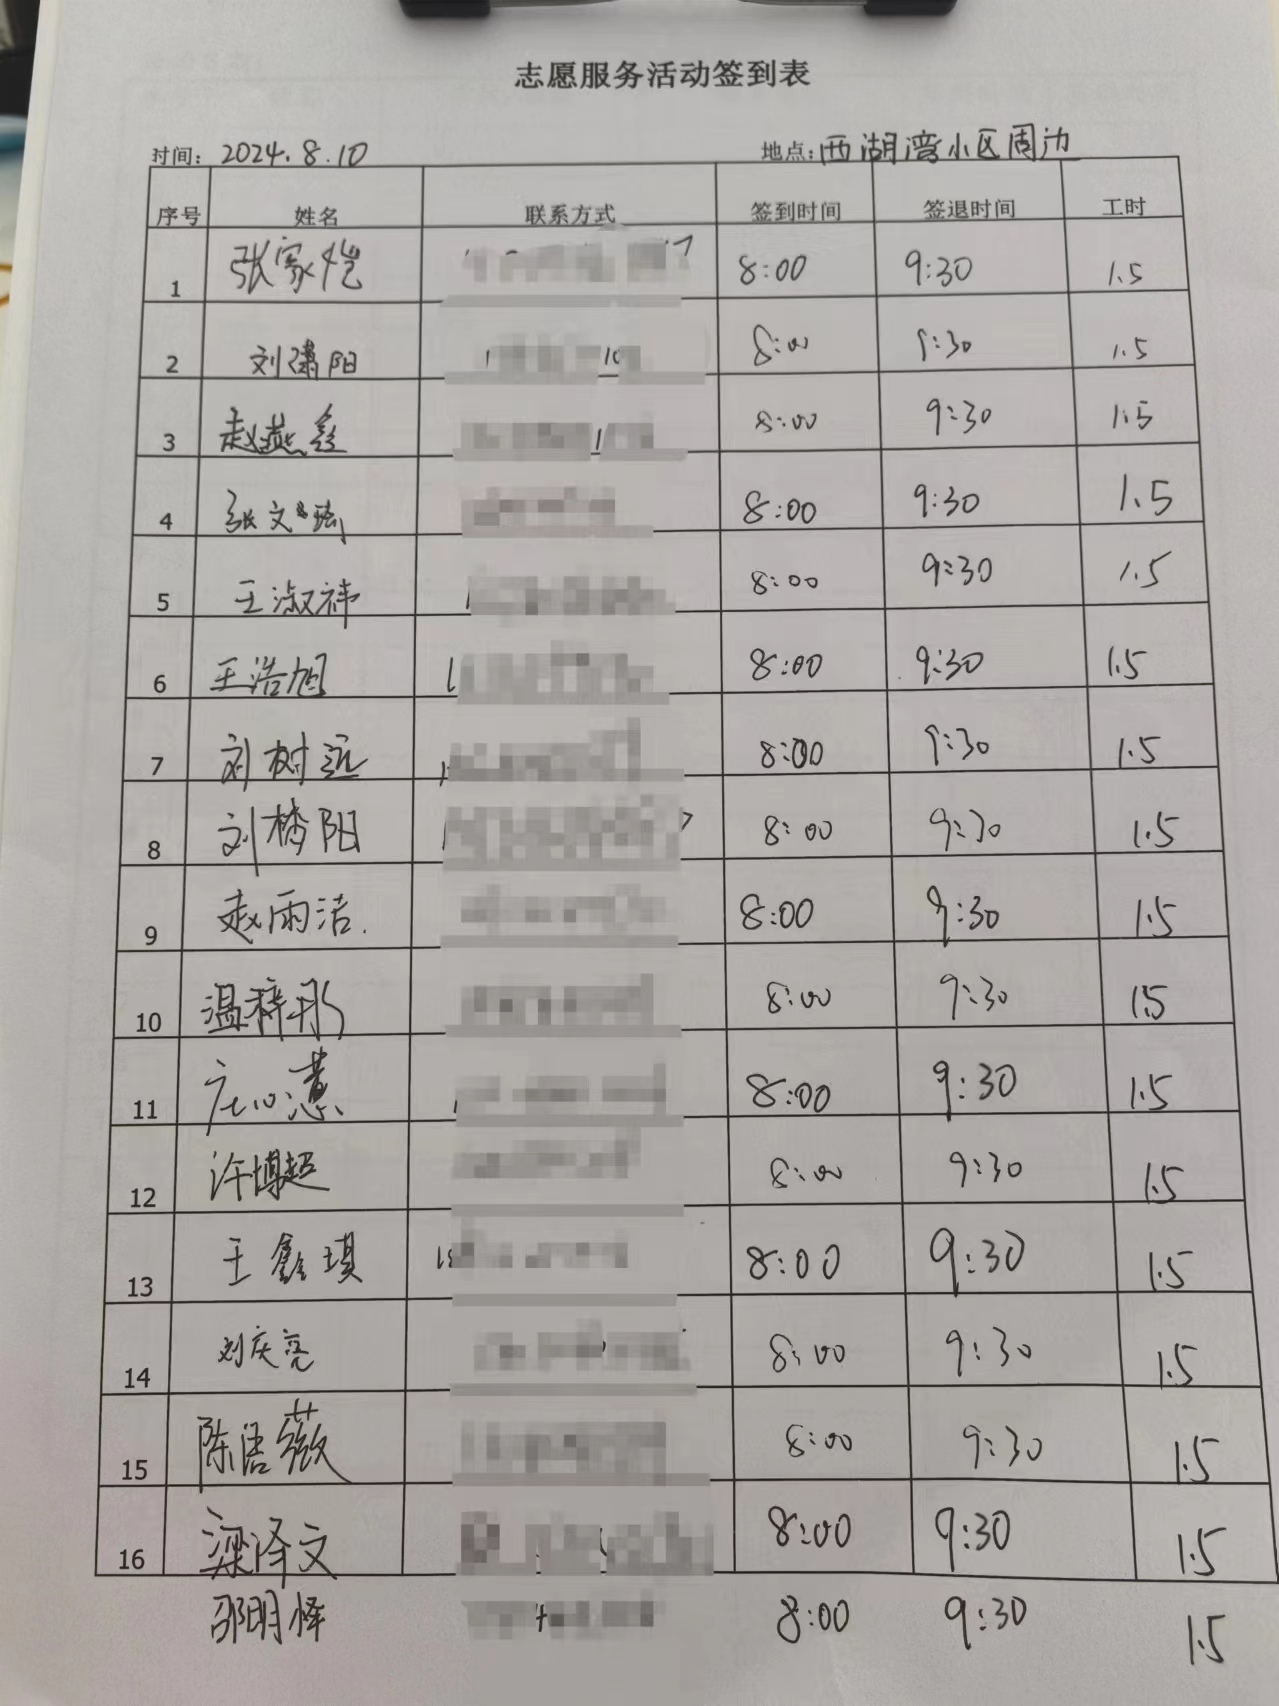 志愿服务活动签到表
时间: 2024.8.10 地点: 西湖湾小区周边
序号 姓名 联系方式 签到时间 签退时间 工时
1 张家恺 8:00 9:30 1.5
2 刘潇阳 8:00 9:30 1.5
3 赵燕鑫 8:00 9:30 1.5
4 张文 8:00 9:30 1.5
5 王淑祎 8:00 9:30 1.5
6 王浩旭 8:00 9:30 1.5
7 刘树远 8:00 9:30 1.5
8 刘梣阳 8:00 9:30 1.5
9 赵雨洁. 8:00 9:30 1.5
10 温梓彤 8:00 9:30 1.5
11 庄心慧 8:00 9:30 1.5
12 许博超 8:00 9:30 1.5
13 王鑫琪 8:00 9:30 1.5
14 刘庆亮 8:00 9:30 1.5
15 陈语薇 8:00 9:30 1.5
16 梁泽文 8:00 9:30 1.5
邵明怿 8:00 9:30 1.5